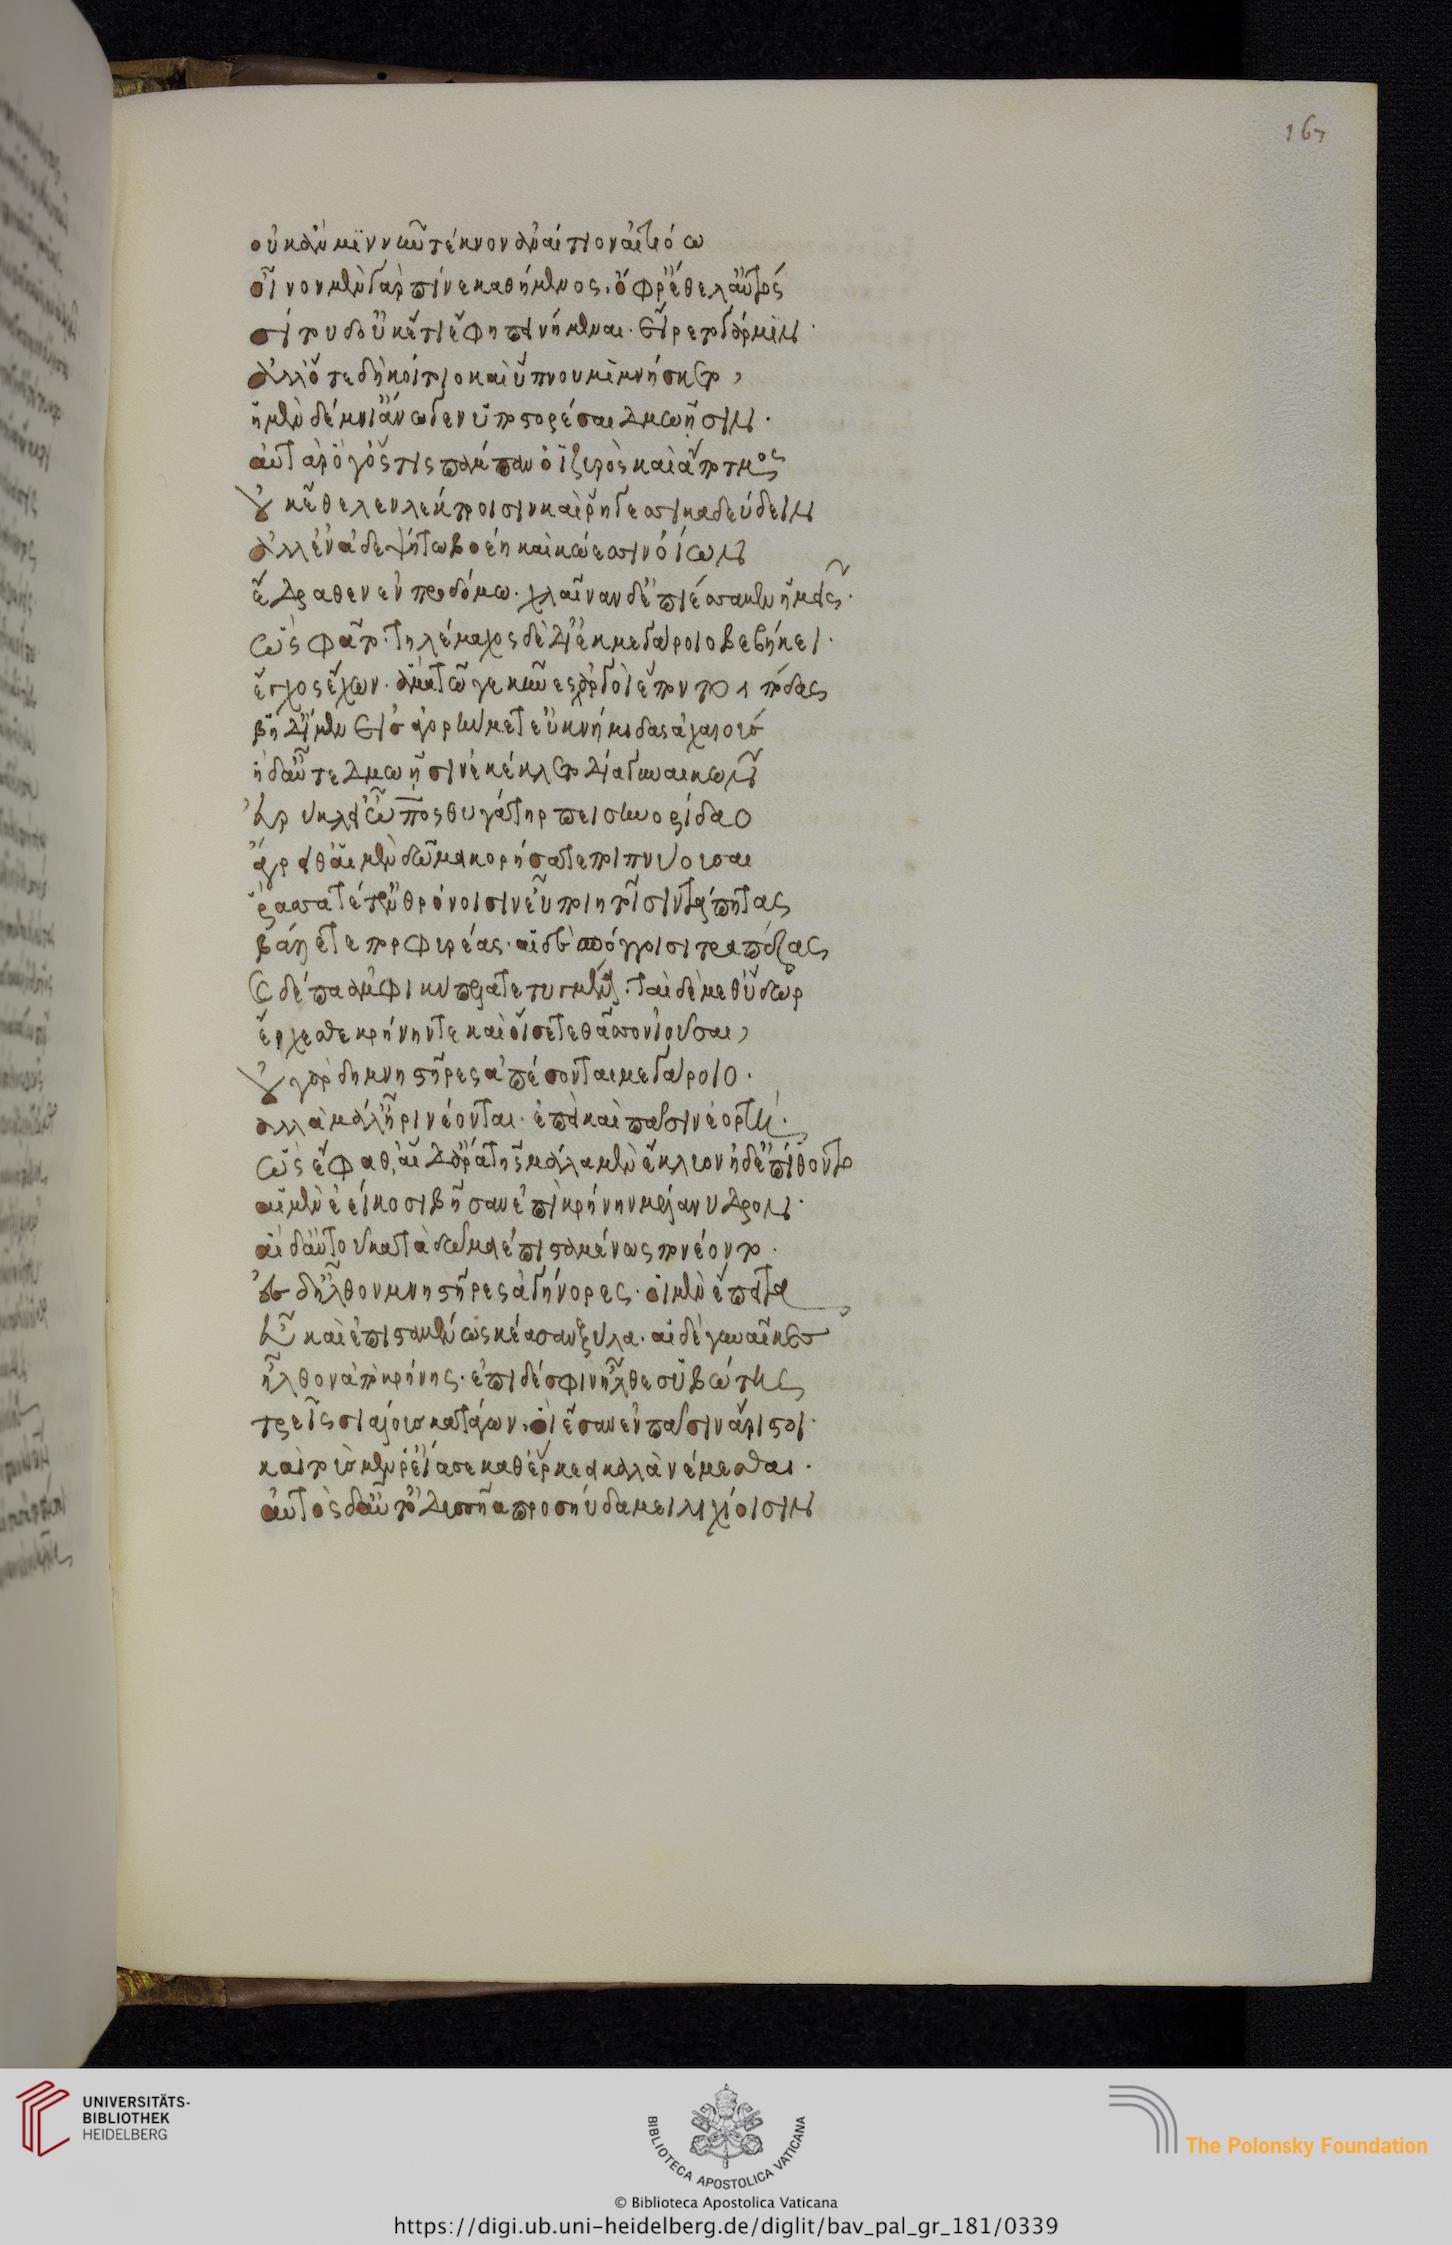 167
οὐκ ἄν μιν νῦν τέκνον ἀναίτιον αἰτιόῳο
οἶνον μὲν γὰρ πῖνε καθήμενος. ὄφρ' ἔθελ' αὐτός
σίτου δ' οὐκέτ' ἔφη πεινήμεναι. εἴρετο γάρ μιν.
ἀλλ' ὅτε δὴ κοίτοιο καὶ ὕπνου μιμνήσκοιτο,
ἡ μὲν δέμνι' ἄνωγεν ὑποστορέσαι δμωῇσιν.
αὐτὰρ ὅγ' ὥς τις πάμπαν ὀϊζυρὸς καὶ ἄποτμος
οὐκ ἔθελ' ἐν λέκτροισιν καὶ ῥήγεσσι καθεύδειν
ἀλλ' ἐν ἀδεψήτῳ βοέῃ καὶ κώεσιν οἰῶν
ἔδραθεν ἐν προδόμῳ. χλαῖναν δ' ἐπιέσσαμεν ἡμεῖς.
ὣς φάτο. τηλέμαχος δὲ δι' ἐκ μεγάροιο βεβήκει.
ἔγχος ἔχων. ἅμα τῷγε κύνες ἀργοὶ ἕποντο πόδας
βῆ δ' ἴμεν εἰς ἀγορὴν μετ' εὐκνήμιδας ἀχαιούς
ἡ δ' αὖτε δμωῇσιν ἐκέκλετο δῖα γυναικῶν
εὐρύκλει' ὦπος θυγάτηρ πεισηνορίδαο
ἄγρειθ' αἱ μὲν δῶμα κορήσατε ποιπνύουσαι
ῥάσσατέ τ' ἔν τε θρόνοισιν εὐποιήτοισι τάπητας
βάλλετε πορφυρέας. αἱ δὲ σπόγγοισι τραπέζας
καὶ δέπα ἀμφικύπελλα τετυγμένα. ταὶ δὲ μεθ' ὕδωρ
ἔρχεσθε κρήνηνδε καὶ οἴσετε θᾶσσον ἰοῦσαι,
οὐ γὰρ δὴν μνηστῆρες ἀπέσονται μεγάροιο.
ἀλλὰ μάλ' ἦρι νέονται. ἐπεὶ καὶ πᾶσιν ἑορτή.
ὣς ἔφαθ' αἱ δ' ἄρα τῆς μάλα μὲν κλύον ἠδ' ἐπίθοντο
αἱ μὲν ἐείκοσι βῆσαν ἐπὶ κρήνην μελάνυδρον.
αἱ δ' αὐτοῦ κατὰ δώματ' ἐπισταμένως πονέοντο.
ἐς δ' ἦλθον μνηστῆρες ἀγήνορες. οἱ μὲν ἔπειτα
εὖ καὶ ἐπισταμένως κέασαν ξύλα. αἱ δὲ γυναῖκες
ἦλθον ἀπὸ κρήνης. ἐπὶ δέ σφιν ἦλθε συβώτης
τρεῖς σιάλους κατάγων. οἳ ἔσαν ἐν πᾶσιν ἄριστοι.
καὶ τοὺς μέν ῥ' εἴασε καθ' ἕρκεα καλὰ νέμεσθαι.
αὐτὸς δ' αὖτ' ὀδυσσῆα προσηύδα μειλιχίοισιν
UNIVERSITÄTS-
BIBLIOTHEK
HEIDELBERG
BIBLIOTECA APOSTOLICA VATICANA
The Polonsky Foundation
© Biblioteca Apostolica Vaticana
https://digi.ub.uni-heidelberg.de/diglit/bav_pal_gr_181/0339